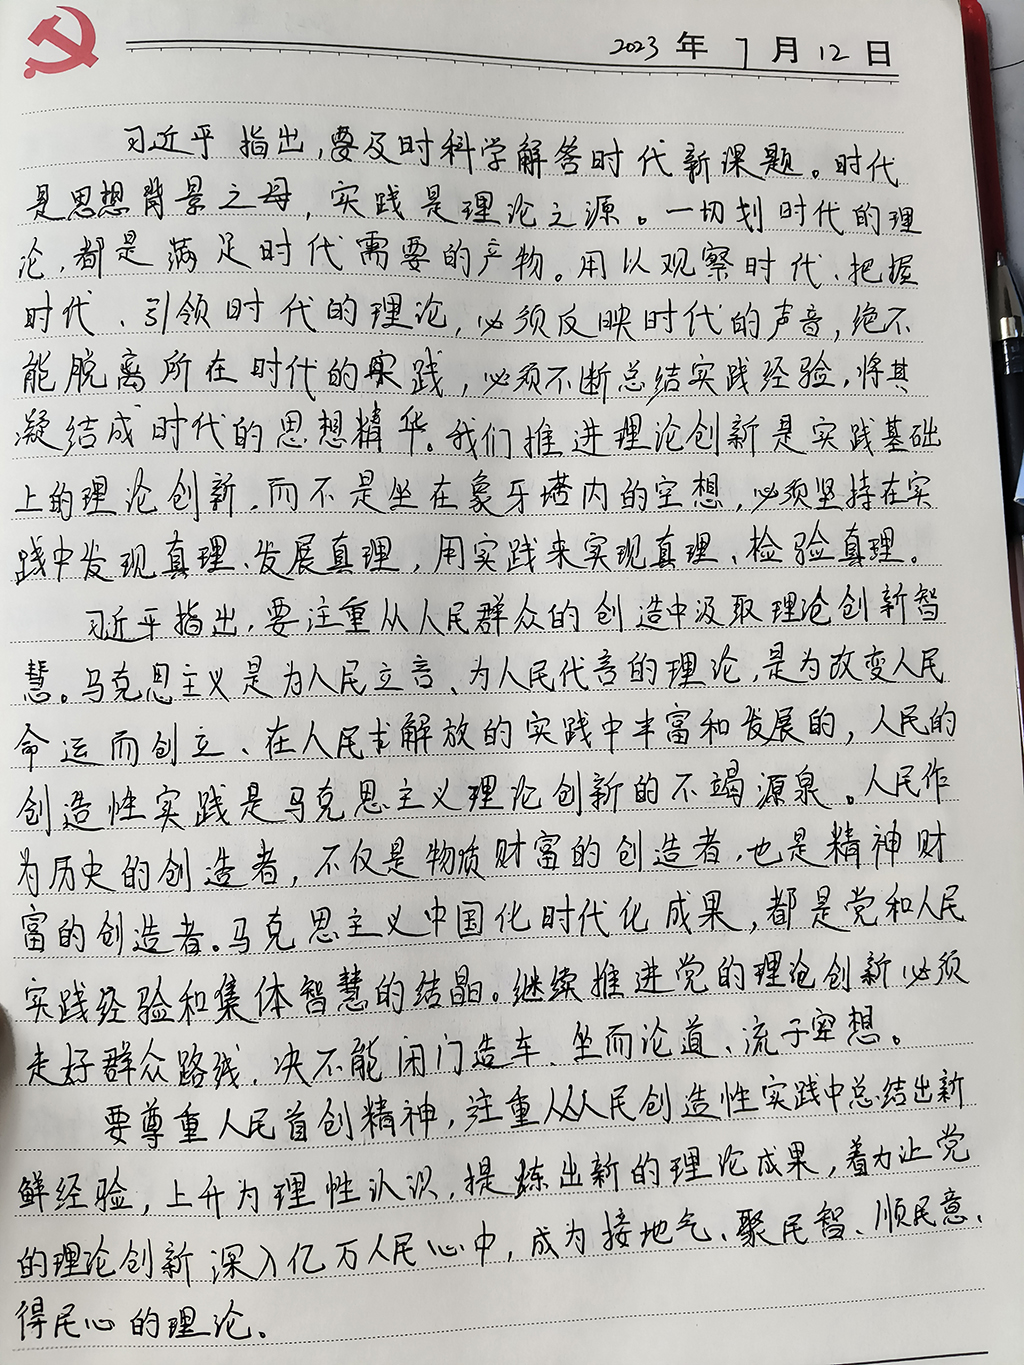 2023年7月12日
习近平指出,要及时科学解答时代新课题。时代
是思想背景之母,实践是理论之源。一切划时代的理
论,都是满足时代需要的产物。用以观察时代、把握
时代、引领时代的理论,必须反映时代的声音,绝不
能脱离所在时代的实践,必须不断总结实践经验,将其
凝结成时代的思想精华。我们推进理论创新是实践基础
上的理论创新,而不是坐在象牙塔内的空想,必须坚持在实
践中发现真理、发展真理,用实践来实现真理、检验真理。
习近平指出,要注重从人民群众的创造中汲取理论创新智
慧。马克思主义是为人民立言、为人民代言的理论,是为改变人民
命运而创立、在人民求解放的实践中丰富和发展的,人民的
创造性实践是马克思主义理论创新的不竭源泉。人民作
为历史的创造者,不仅是物质财富的创造者,也是精神财
富的创造者。马克思主义中国化时代化成果,都是党和人民
实践经验和集体智慧的结晶。继续推进党的理论创新必须
走好群众路线,决不能闭门造车、坐而论道、流于空想。
要尊重人民首创精神,注重从人民创造性实践中总结出新
鲜经验,上升为理性认识,提炼出新的理论成果,着力让党
的理论创新深入亿万人民心中,成为接地气、聚民智、顺民意、
得民心的理论。